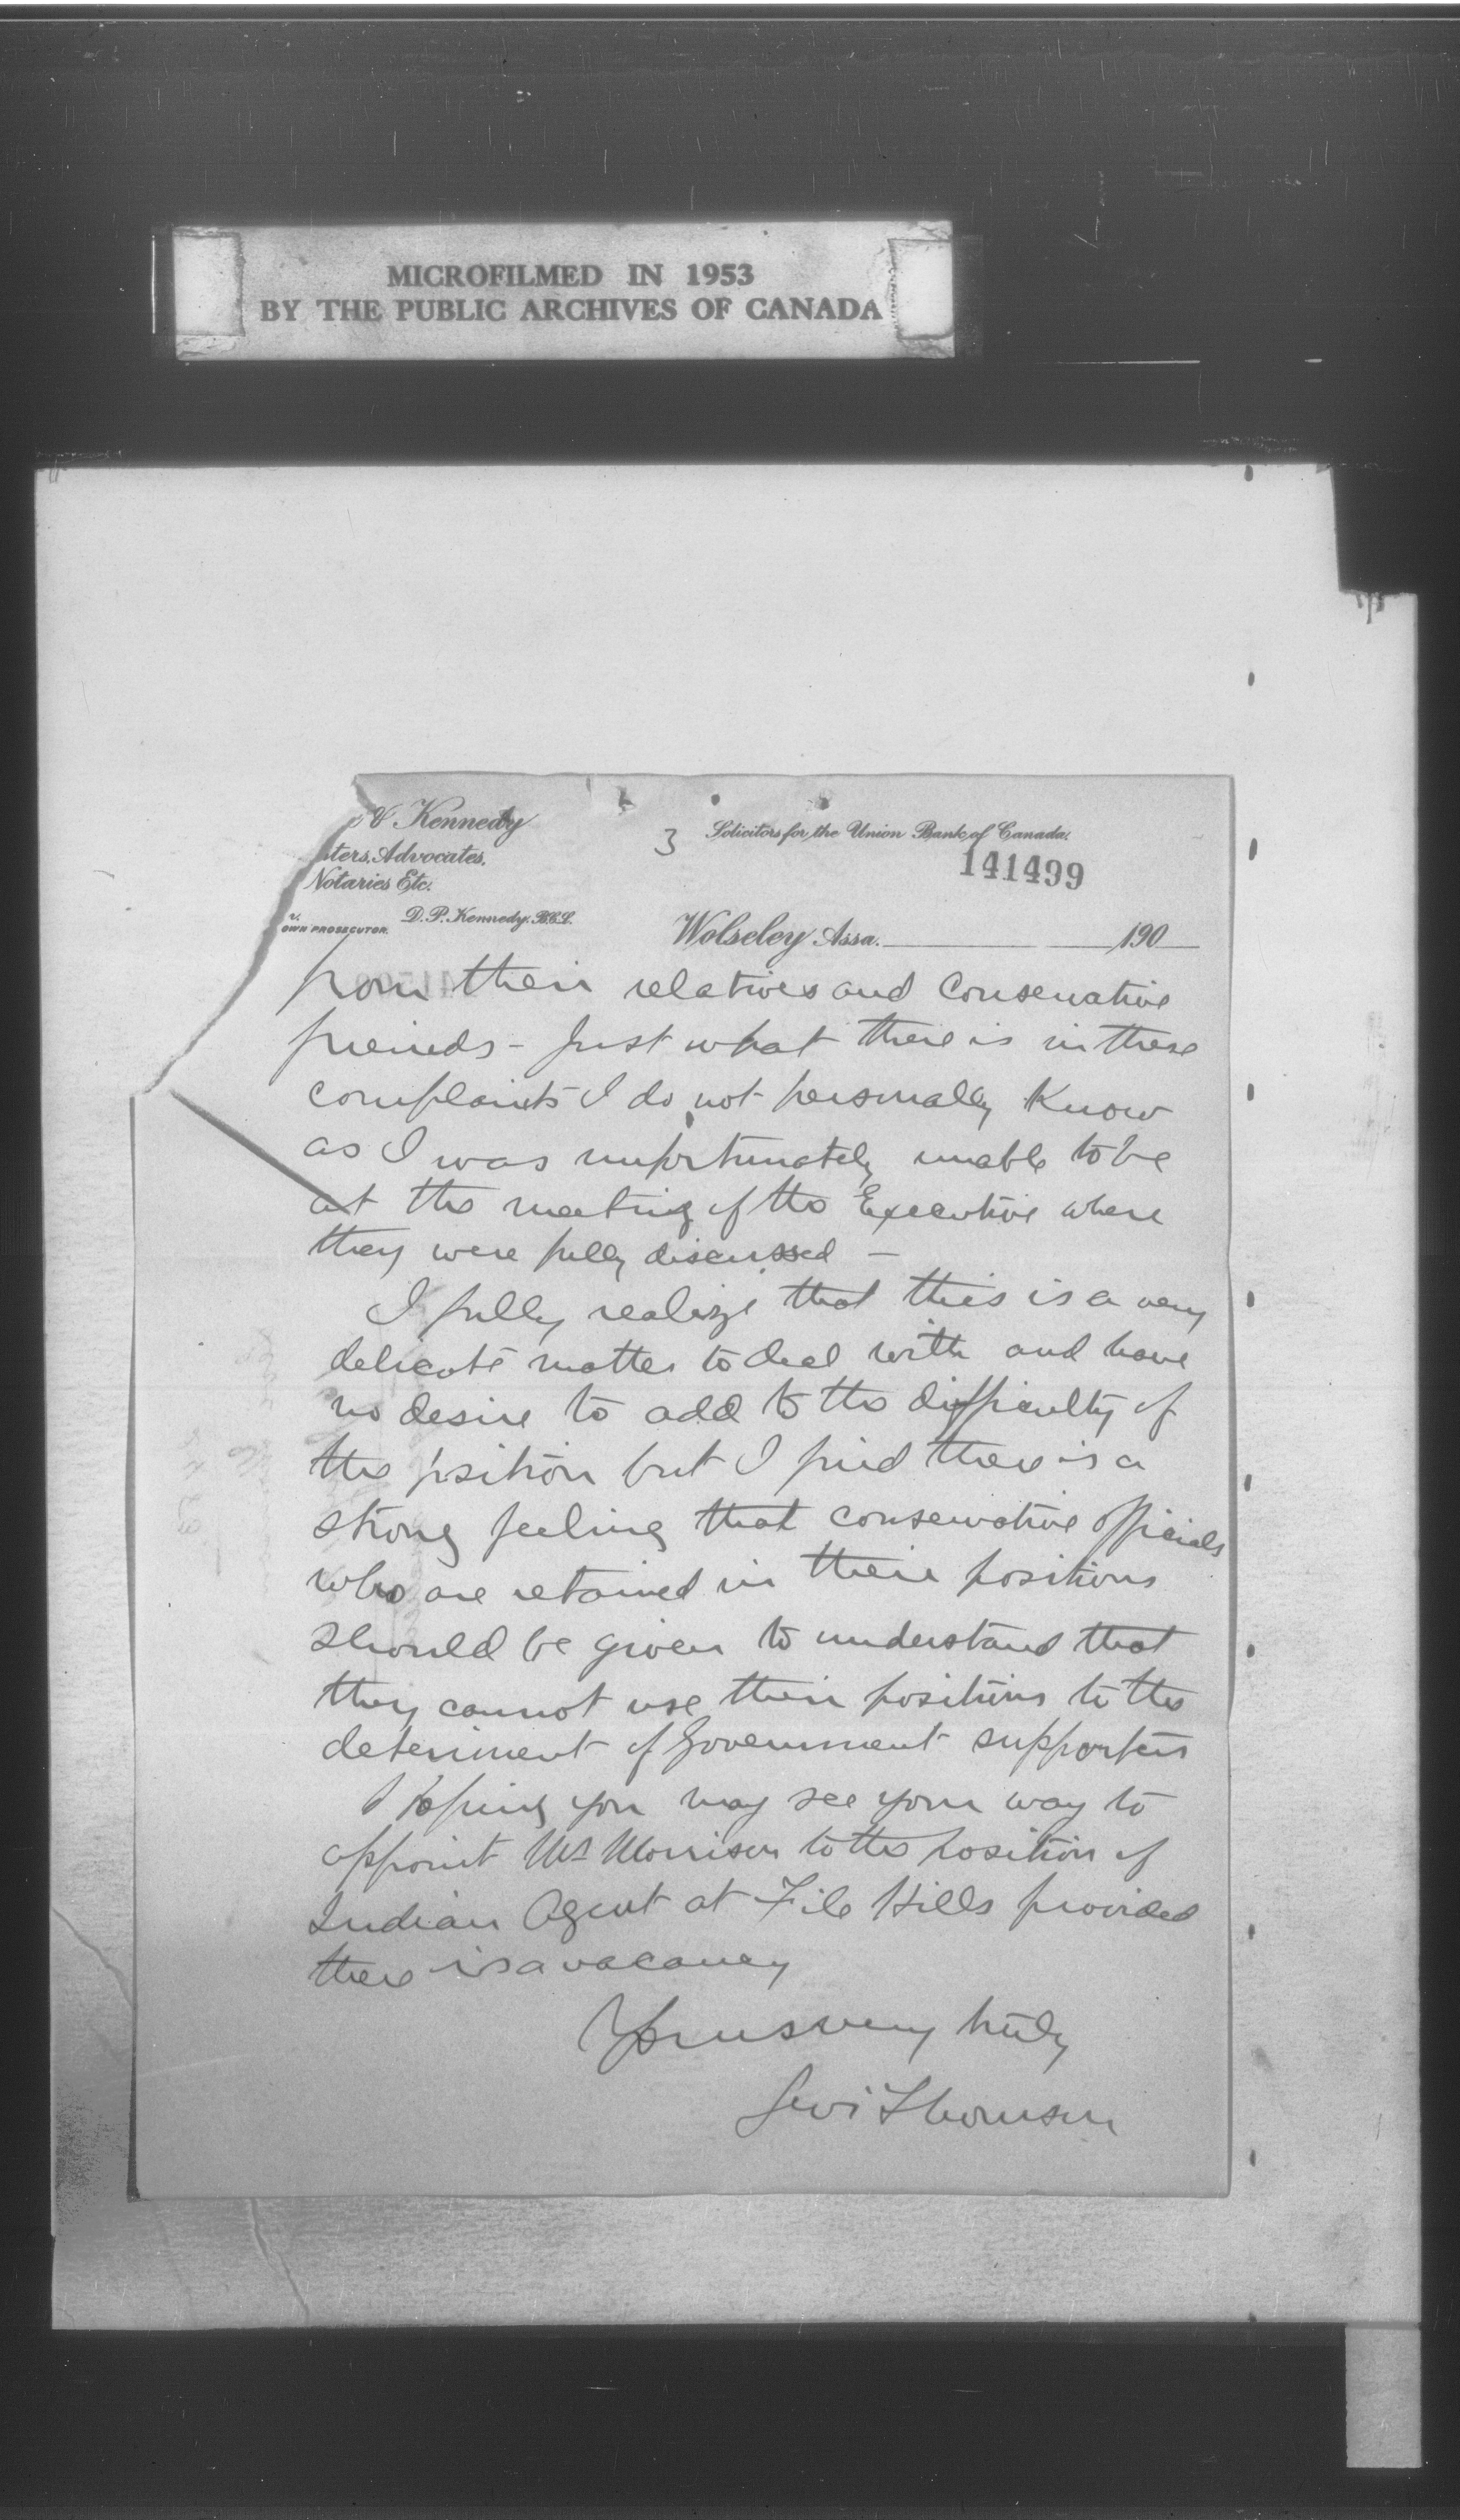 MICROFILMED IN 1953
BY THE PUBLIC ARCHIVES OF CANADA
& Kennedy
sters, Advocates,
Notaries Etc.
OWN PROSECUTOR. D. P. Kennedy. B.C.L.
3
Solicitors for the Union Bank of Canada.
141499
Wolseley Assa. 190
from their relatives and Conservative
friends - Just what there is in these
complaints I do not personally Know
as I was unfortunately unable to be
at the meeting of the Executive where
they were fully discussed -
I fully realize that this is a very
delicate matter to deal with and have
no desire to add to the difficulty of
the position but I find there is a
strong feeling that conservative officials
who are retained in their positions
should be given to understand that
they cannot use their positions to the
deteriment of Government supporters
Hoping you may see your way to
appoint Mr Morrison to the position of
Indian Agent at File Hills provided
there is a vacancy
Yours very truly
Levi Thomson